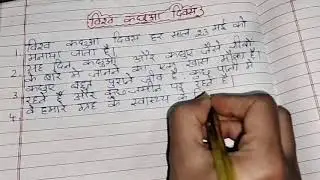 विश्व कछुआ दिवस
1. विश्व कछुआ दिवस हर साल 23 मई को
मनाया जाता है।
2. यह दिन कछुआ और कछुए जैसे जीवों
के बारे में जानने का एक खास मौका है।
3. कछुए बहुत पुराने जीव है। कुछ पानी में
रहते हैं और कुछ जमीन पर रहते हैं।
4. वे हमारे ग्रह के स्वास्थ्य